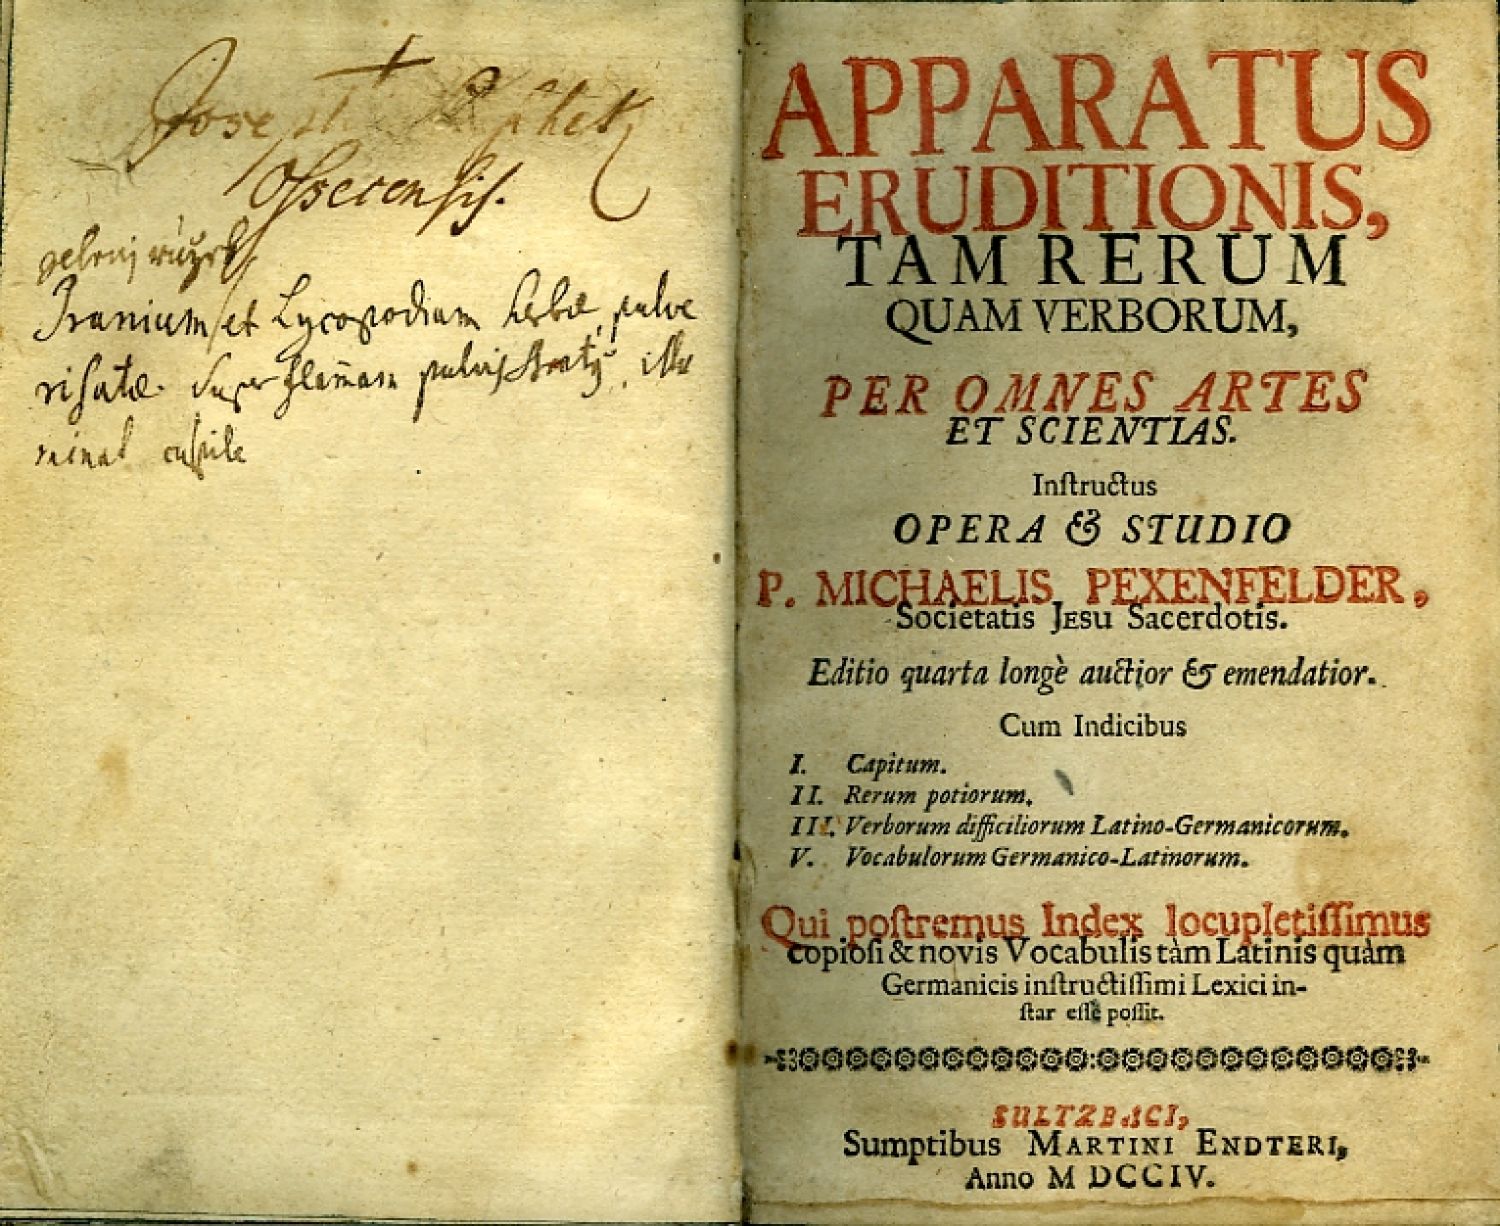 Ossecensis.
et Lycopodium herbæ, pulve
risatæ. super flam̄am
minat cuspide
APPARATUS
ERUDITIONIS,
TAM RERUM
QUAM VERBORUM,
PER OMNES ARTES
ET SCIENTIAS.
Inſtructus
OPERA & STUDIO
P. MICHAELIS PEXENFELDER,
Societatis Jesu Sacerdotis.
Editio quarta longè auctior & emendatior.
Cum Indicibus
I. Capitum.
II. Rerum potiorum.
III. Verborum difficiliorum Latino-Germanicorum.
V. Vocabulorum Germanico-Latinorum.
Qui poſtremus Index locupletiſſimus
copioſi & novis Vocabulis tàm Latinis quàm
Germanicis inſtructiſſimi Lexici in-
ſtar eſſe poſſit.
SULTZBACI,
Sumptibus MARTINI ENDTERI,
Anno M DCCIV.